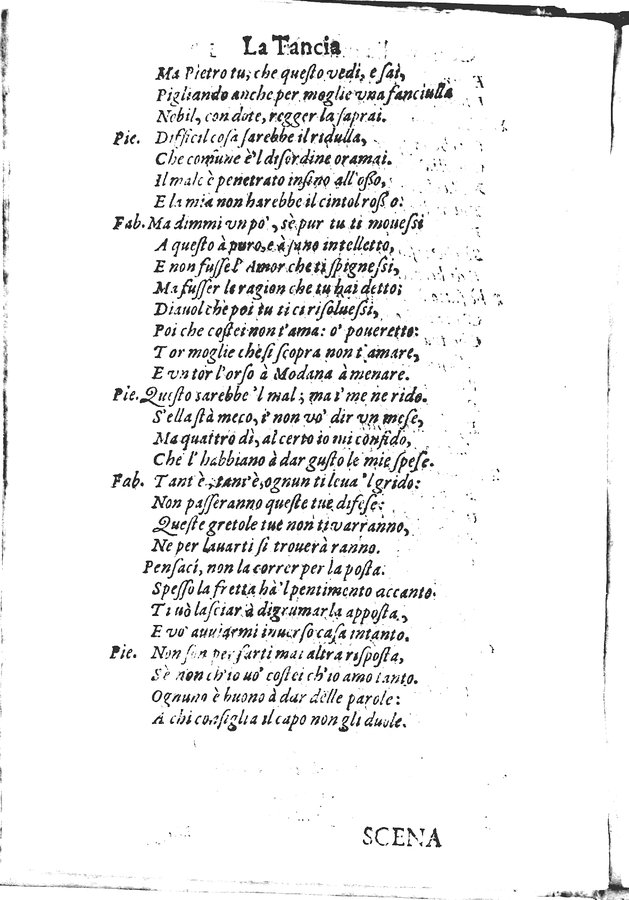 La Tancia
Ma Pietro tu, che questo vedi, e sai,
Pigliando anche per moglie vna fanciulla
Nobil, con dote, regger la saprai.
Pie. Difficil cosa sarebbe il ridulla,
Che comune è'l disordine oramai.
Il male è penetrato insino all'osso,
E la mia non harebbe il cintol rosso.
Fab. Ma dimmi vn po', sè pur tu ti mouessi
A questo à puro, e à sano intelletto,
E non fusse l'Amor che ti spignessi,
Ma fusser le ragion che tu hai detto;
Diauol che poi tu ti ci risoluessi,
Poi che costei non t'ama: o' poueretto:
Tor moglie chè si scopra non t'amare,
E vn tor l'orso à Modana à menare.
Pie. Questo sarebbe 'l mal; ma i' me ne rido.
S'ella stà meco, i' non vo' dir vn mese,
Ma quattro dì, al certo io mi confido,
Che l'habbiano à dar gusto le mie spese.
Fab. Tant'è, tant'è, ognun ti leua 'l grido:
Non passeranno queste tue difese:
Queste gretole tue non ti varranno,
Ne per lauarti si trouerà ranno.
Pensaci, non la correr per la posta.
Spesso la fretta hà'l pentimento accanto.
Ti vò lasciar à digrumarla apposta,
E vo' auuiarmi inuerso casa intanto.
Pie. Non son per farti mai altra risposta,
Sè non ch'io vo' costei ch'io amo tanto.
Ognuno è buono à dar delle parole:
A chi consiglia il capo non gli duole.
SCENA